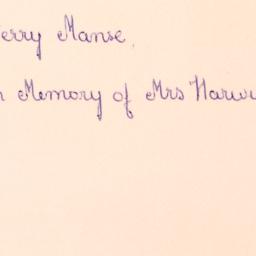 erry Manse,
n Memory of Mrs Harw